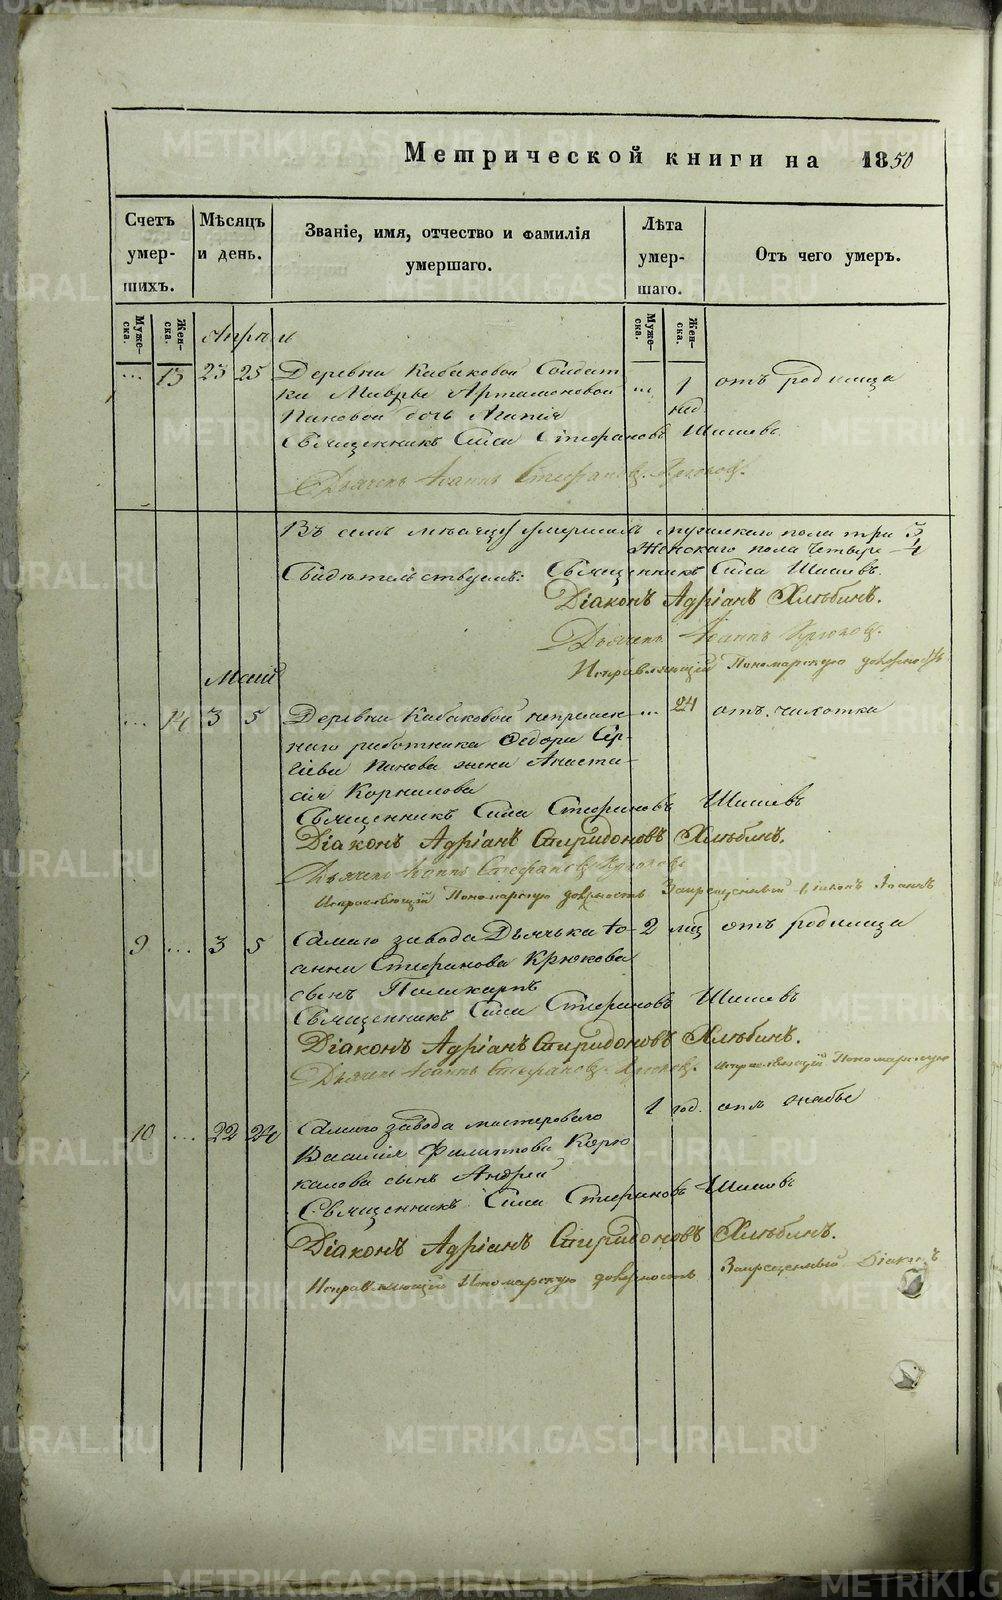 Метрической книги на 1850
Счетъ умер-шихъ.
Мѣсяцъ и день.
Званіе, имя, отчество и фамилія умершаго.
Лѣта умер-шаго.
Отъ чего умеръ.
Муже-ска.
Жен-ска.
Муже-ска.
Жен-ска.
Апрель
... 13 23 25 Деревни Кабаковой Солдат-
ки Мавры Артамоновой ... 1 отъ родимца
Пановой дочь Агапія нед.
Священникъ Сила Стефановъ Шишевъ
Дьячекъ Іоаннъ Стефановъ Крюковъ.
Въ семъ мѣсяцѣ умершихъ мужеска пола три 3
Женскаго пола четыре 4
Свидѣтельствуемъ: Священникъ Сила Шишевъ.
Діаконъ Адріанъ Хлѣбинъ.
Дьячекъ Іоаннъ Крюковъ.
Исправляющій Пономарскую должность
Маій
... 14 3 5 Деревни Кабаковой непремен- ... 24 отъ чахотки
наго работника Федора Сер-
гіева Панова жена Анаста-
сія Корнилова
Священникъ Сила Стефановъ Шишевъ
Діаконъ Адріанъ Спиридоновъ Хлѣбинъ.
Дьячекъ Іоаннъ Стефановъ Крюковъ
Исправляющій Пономарскую должность Запрещенный Діаконъ Іоаннъ
9 ... 3 5 Самаго завода Дьячька Іо- 2 мц отъ родимца
анна Стефанова Крюкова
сынъ Поликарпъ
Священникъ Сила Стефановъ Шишевъ
Діаконъ Адріанъ Спиридоновъ Хлѣбинъ.
Дьячекъ Іоаннъ Стефановъ Крюковъ. исправляющій Пономарскую
10 ... 22 24 Самаго завода мастероваго 1 год. отъ жабы
Василія Филиппова
сынъ Андрей
Священникъ Сила Стефановъ Шишевъ
Діаконъ Адріанъ Спиридоновъ Хлѣбинъ.
Исправляющій Пономарскую должность Запрещенный Діаконъ
METRIKI.GASO-URAL.RU